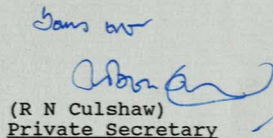 Yours ever
(R N Culshaw)
Private Secretary